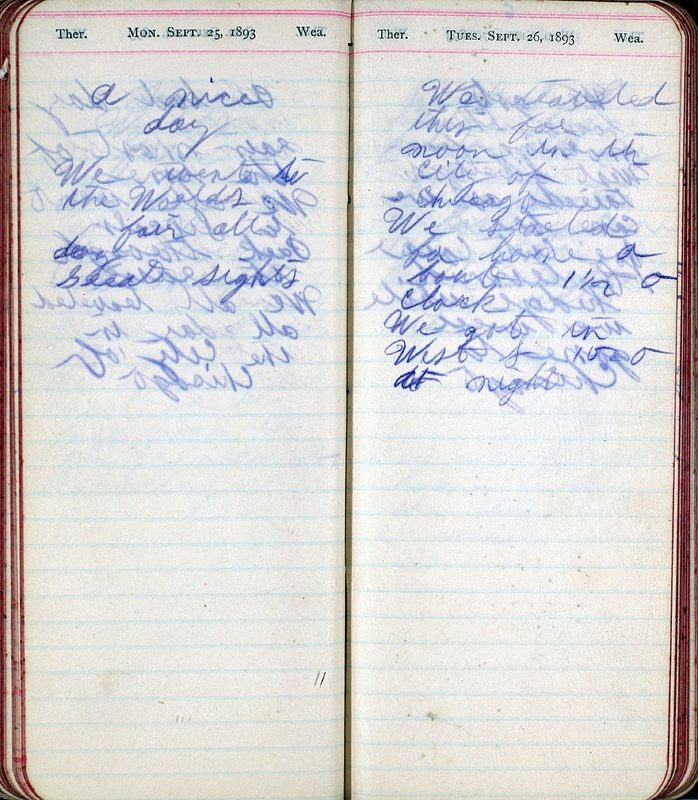 Ther. MON. SEPT. 25, 1893 Wea.
a nice
day
We went to
the Worlds
fair all
day
Great sights
Ther. TUES. SEPT. 26, 1893 Wea.
We traveled
this for
noon in th
City of
Chicago
We started
for home a
bout 1 1/2 o
clock
We got in
West 10 o
at night